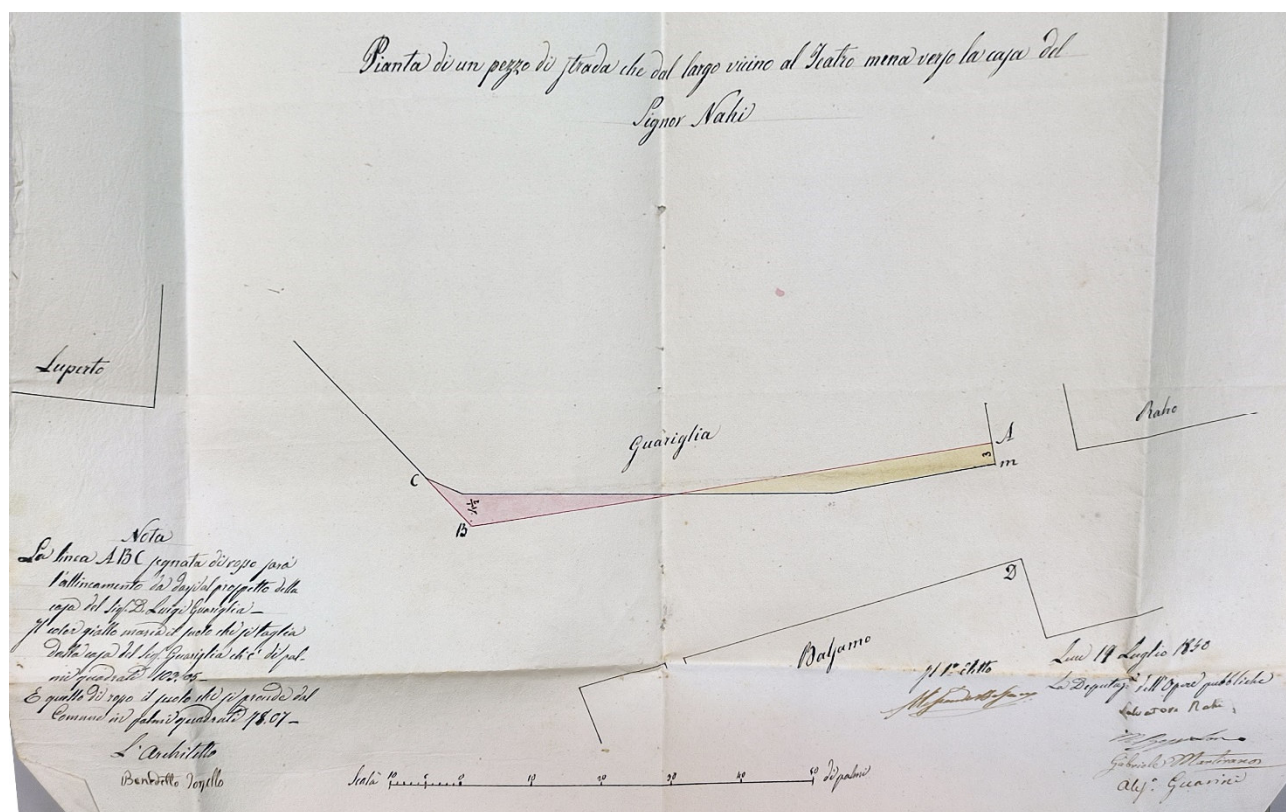 Pianta di un pezzo di strada che dal largo vicino al Teatro mena verso la casa del
Signor Nahi
Luperto
Guariglia
Raho
A
3
m
C
B
D
Balsamo
Nota
La linea ABC segnata di rosso sarà
l'allineamento da darsi al prospetto della
casa del Sig. D. Luigi Guariglia_
Il color giallo marca il suolo che si taglia
dalla casa del Sig. Guariglia ch'è di pal-
mi quadrati 103.05_
E quello di rosso il suolo che si prende dal
Comune in palmi quadrati 78.01_
L'Architetto
Benedetto Torsello
Il 1º Eletto
Lecce 19 Luglio 1850
La Deputaz.e dell'Opere pubbliche
Salvatore Raho
Gabriele
Aless.o Guarini
Scala 10 5 0 10 20 30 40 50 di palmi